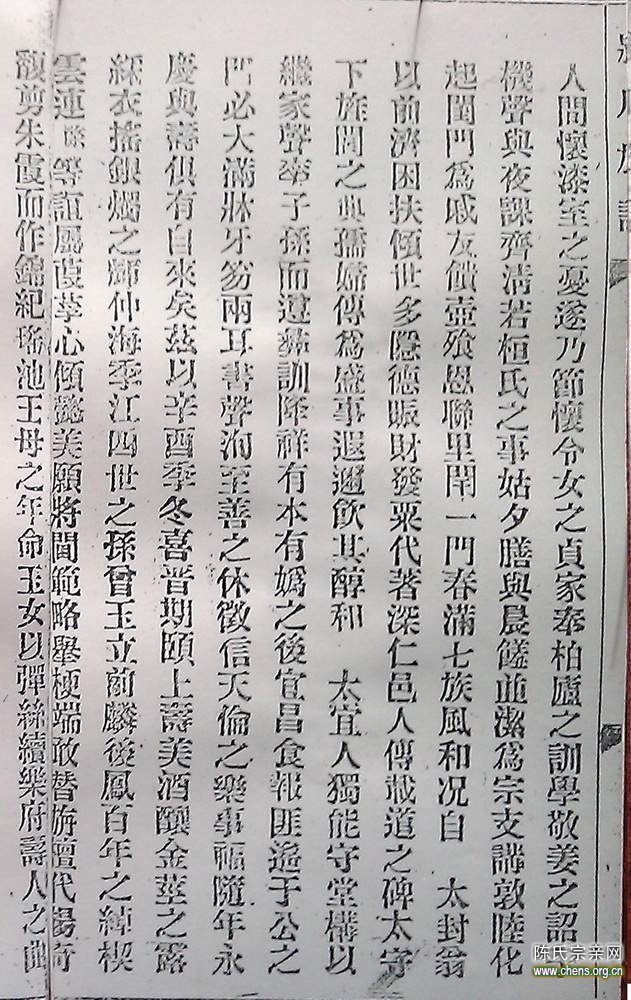 人間懷漆室之憂遂乃節懷令女之貞家奉柏廬之訓學敬姜之
機聲與夜課齊清若桓氏之事姑夕膳與晨饈並潔爲宗支講敦睦化
起閨門爲戚友饋壺飡恩聯里閈一門春滿七族風和况自 太封翁
以前濟困扶傾世多隱德賑財發粟代著深仁邑人傳載道之碑太守
下旌閭之典孺婦傳爲盛事遐邇飲其醇和 太宜人獨能守堂構以
繼家聲奉子孫而遵彝訓降祥有本有嬀之後官昌食報匪遙于公之
門必大滿牀牙笏兩耳書聲洵至善之休徵信天倫之樂事福隨年永
慶與壽俱有自來矣茲以辛酉季冬喜晋期頤上壽美酒釀金莖之露
綵衣搖銀燭之輝仲海季江四世之孫曾玉立前麟後鳳百年之綽楔
雲連 等誼屬葭莩心傾懿美願將閫範略舉梗端敢替旃檀代揚
馥剪朱霞而作錦紀瑤池王母之年命玉女以彈絲續樂府壽人之曲
陈氏宗亲网
www.chens.org.cn